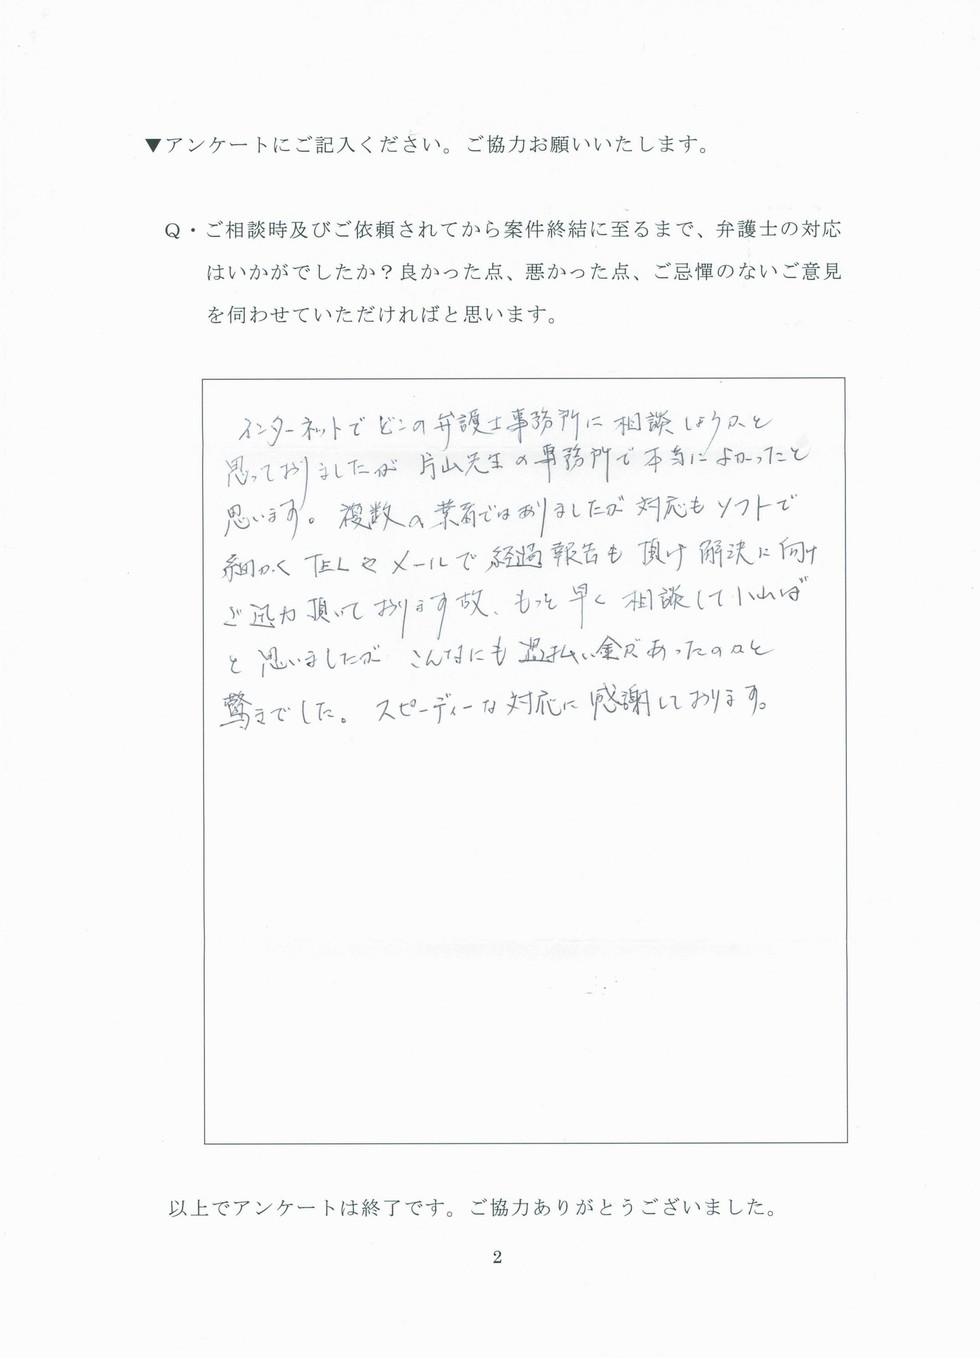 ▼アンケートにご記入ください。ご協力お願いいたします。
Q・ご相談時及びご依頼されてから案件終結に至るまで、弁護士の対応
はいかがでしたか？良かった点、悪かった点、ご忌憚のないご意見
を伺わせていただければと思います。
インターネットでどこの弁護士事務所に相談しようかと
思っておりましたが片山先生の事務所で本当によかったと
思います。複数の業者ではありましたが対応もソフトで
細かくTELやメールで経過報告も頂け解決に向け
ご迅力頂いております故、もっと早く相談していればば
と思いましたが こんなにも過払い金があったのかと
驚きでした。スピーディーな対応に感謝しております。
以上でアンケートは終了です。ご協力ありがとうございました。
2